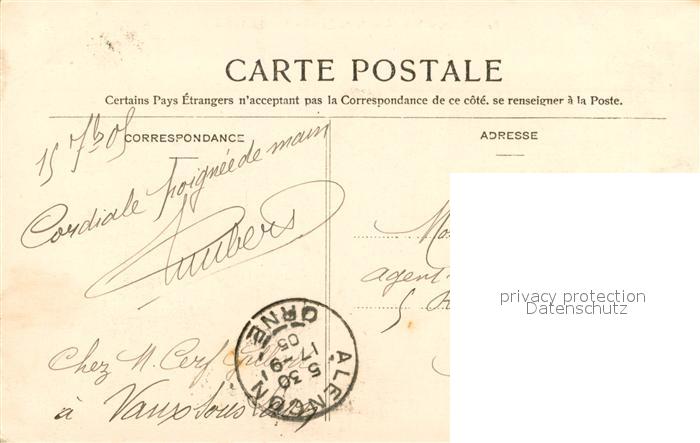 CARTE POSTALE
Certains Pays Étrangers n'acceptant pas la Correspondance de ce côté. se renseigner à la Poste.
CORRESPONDANCE
15 7b 05
Cordiale poignée de main
Chez M. Cerf
à Vaux sous
ALENÇON
ORNE
5 30
17-9
05
ADRESSE
agent
5 R
privacy protection
Datenschutz